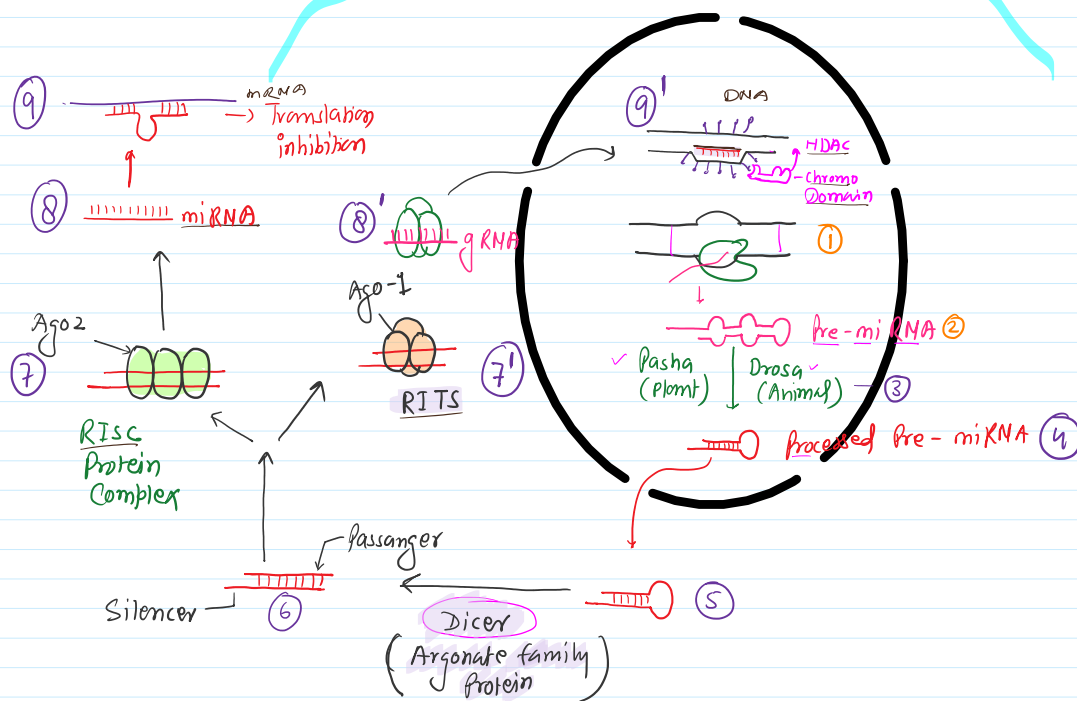 9
mRNA
→ Translation
inhibition
8
miRNA
8'
gRNA
Ago-1
Ago2
7
RISC
Protein
Complex
7'
RITS
9'
DNA
HDAC
Chromo
Domain
1
Pre-miRNA 2
✓ Pasha
(Plant)
Drosa ✓
(Animal)
3
Processed Pre-miRNA 4
Passanger
Silencer
6
5
Dicer
(Argonate family
Protein)